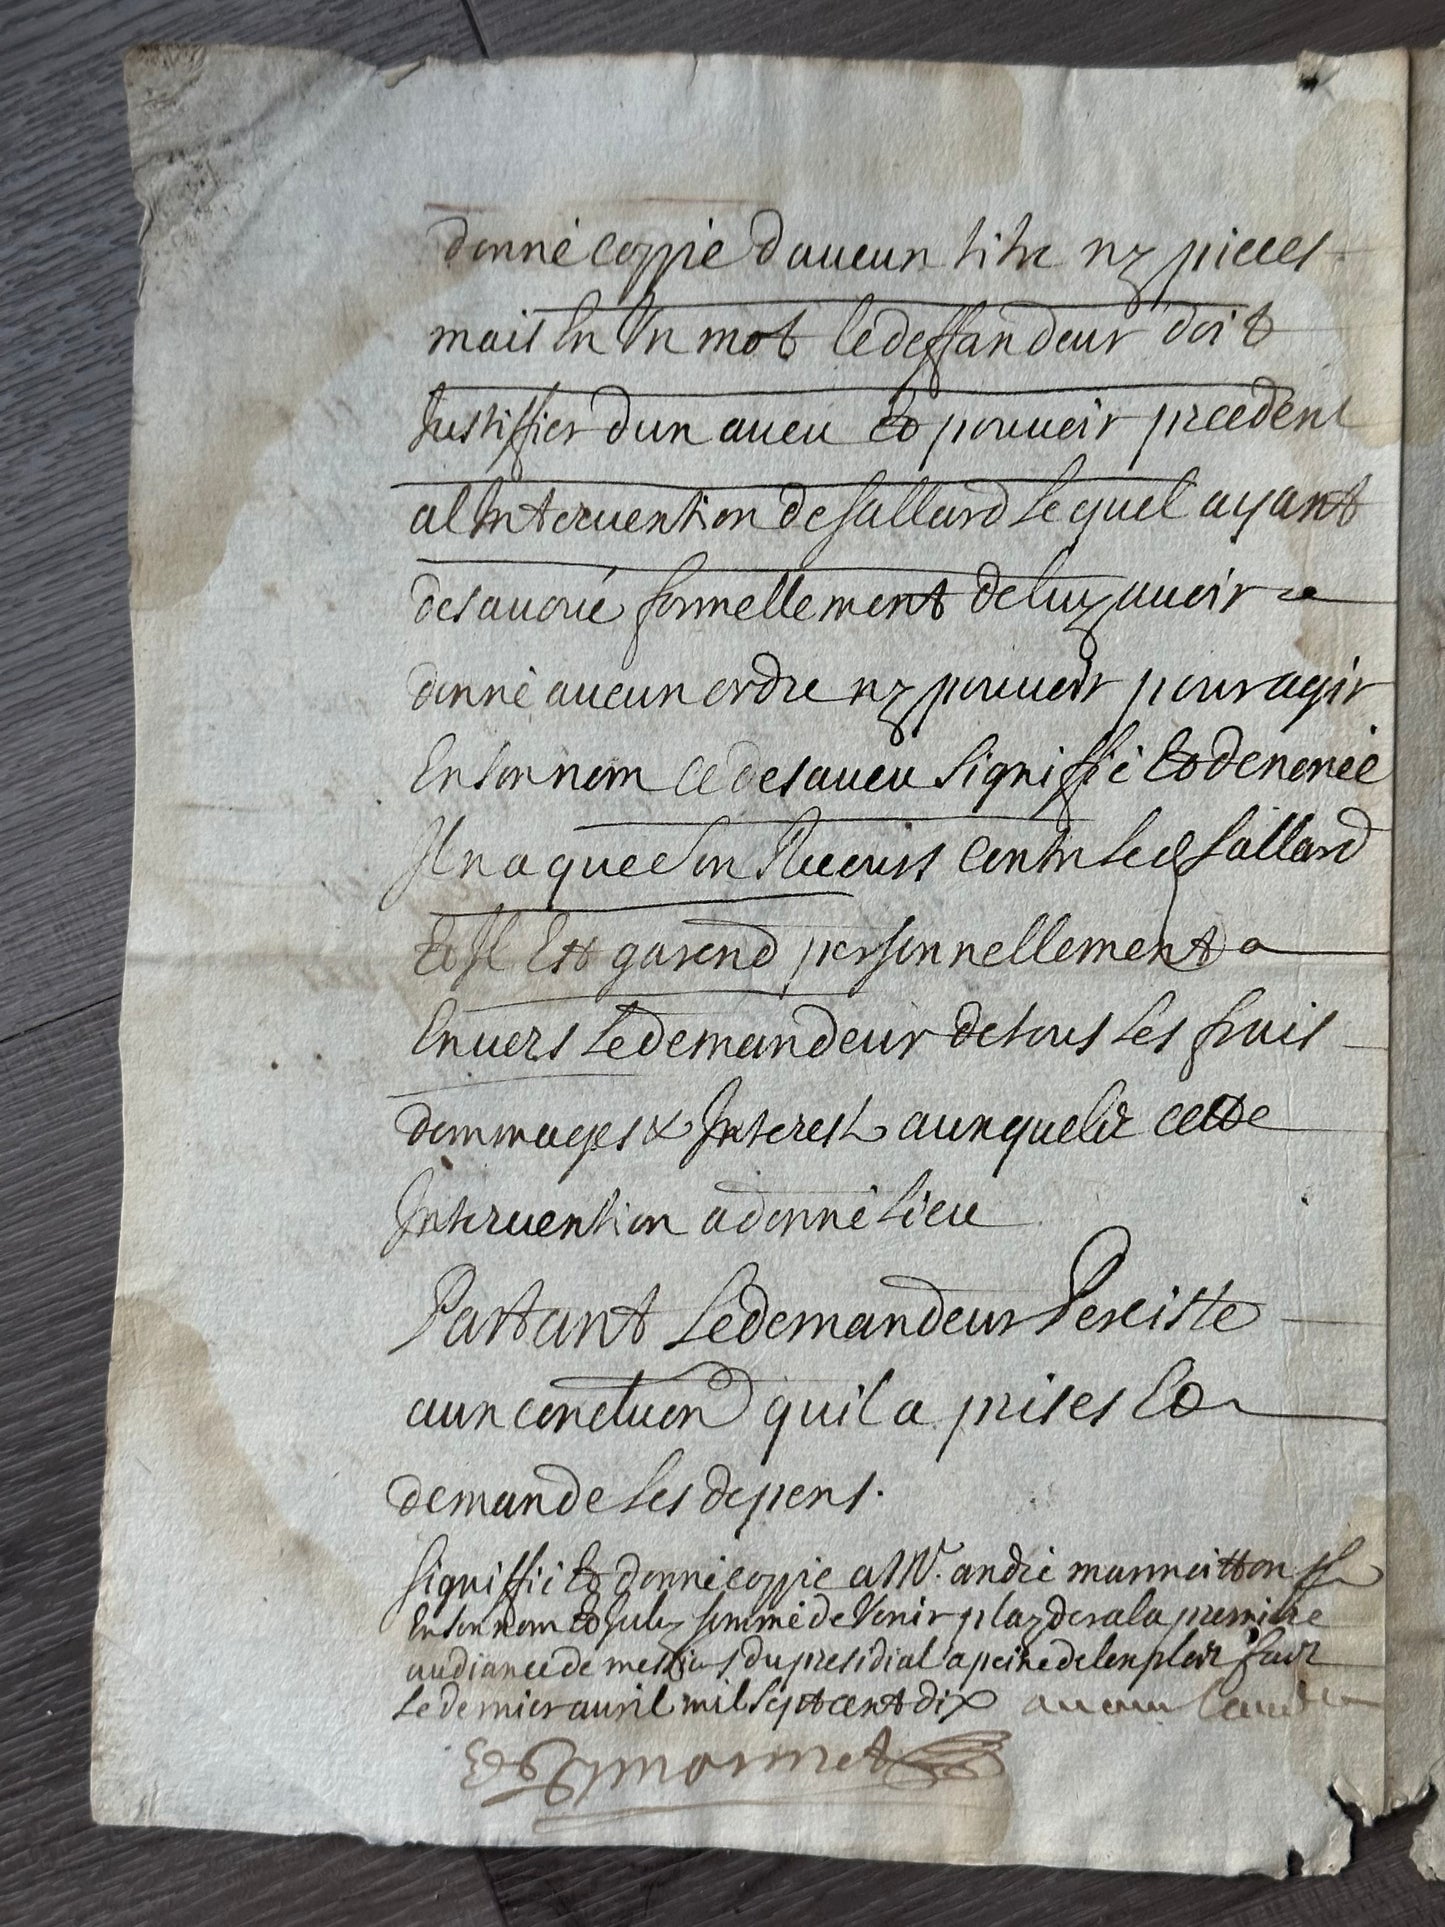 donné coppie daucun titre ny pieces
mais En Vn mot le deffandeur doit
Justiffier dun aueu Et pouuoir precedent
al Interuention de sallard lequel ayant
desauoué formellement deluy auoir
donné aucun ordre ny pouuoir pour agir
En son nom ce desaueu signiffié Et denoncé
Il na que son Recours contre led sallard
Et Il Est garend personnellement
Enuers le demandeur de tous les frais
dommages & Interest aux quelz cette
Interuention a donné lieu
Partant le demandeur Persiste
aux concluon quil a prises Et
demande les depens.
signiffié Et donné coppie a Mr. andré
En son nom Et sommé de Venir playder a la premiere
audiance de messieurs du presidial a peine de lenploir fair
le dernier auril mil sept cent dix
mornet